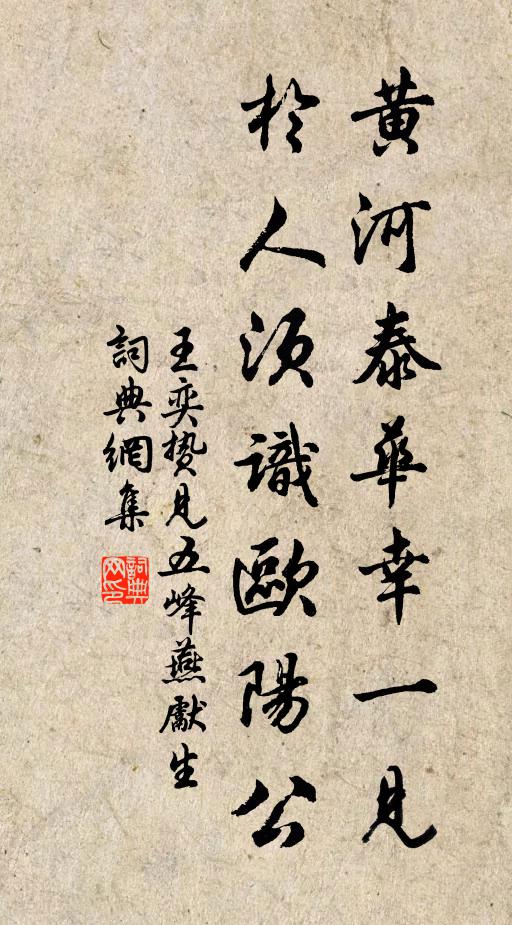 黄河泰華幸一見
於人須識歐陽公
王奕贄見五峰燕獻生
詞典網集
詞典网印